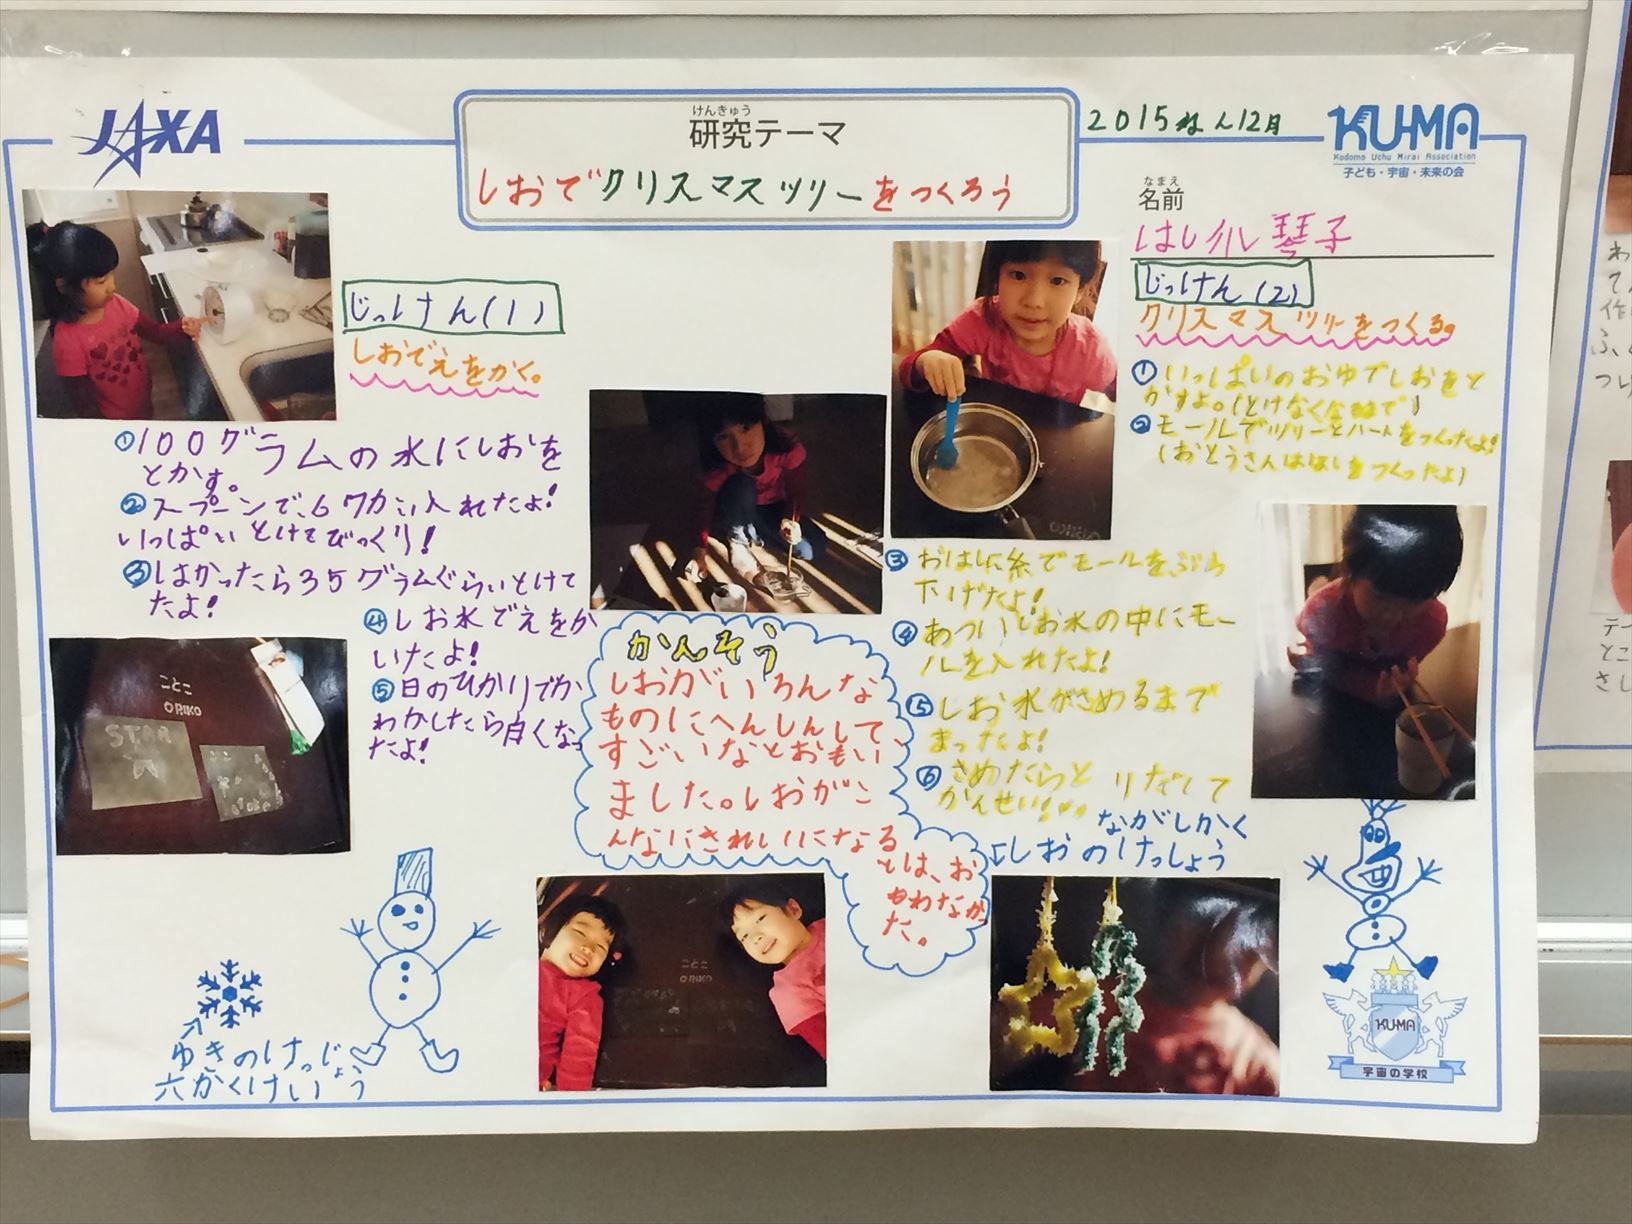 JAXA
けんきゅう
研究テーマ
しおでクリスマスツリーをつくろう
2015ねん12月
KU-MA
Kodomo Uchu Mirai Association
子ども・宇宙・未来の会
なまえ
名前
琴子
じっけん(1)
しおでえをかく。
①100グラムの水にしおを
とかす。
②スプーンで、6ワカい入れたよ!
いっぱいとけてびっくり!
③はかったら35グラムぐらいとけて
たよ!
④しお水でえをか
いたよ!
⑤日のひかりでか
わかしたら白くなっ
たよ!
ことこ
ORIKO
STAR
かんそう
しおがいろんな
ものにへんしんして、
すごいなとおもい
ました。しおがこ
んなにきれいになる
とは、お
もわなかっ
た。
じっけん(2)
クリスマスツリーをつくる。
①いっぱいのおゆでしおをと
かすよ。(とけなくなるまで)
②モールでツリーとハートをつくったよ!
(おとうさんはほしをつくったよ)
③おはしに糸でモールをぶら
下げたよ!
④あついしお水の中にモー
ルを入れたよ!
⑤しお水がさめるまで
まったよ!
⑥さめたらとりだして
かんせい!
ながしかく
しおのけっしょう
ゆきのけっしょう
六かくけい
ことこ
ORIKO
KU-MA
宇宙の学校